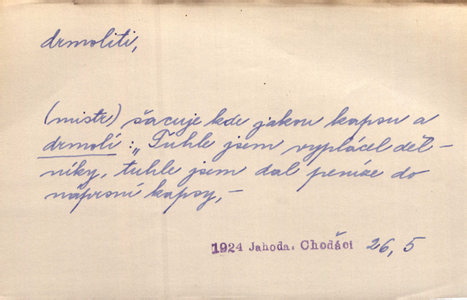 drmoliti,
(mistr) šacuje kde jakou kapsu a
drmolí: „Tuhle jsem vyplácel děl-
níky, tuhle jsem dal peníze do
náprsní kapsy,-
1924 Jahoda. Chodáci 26, 5